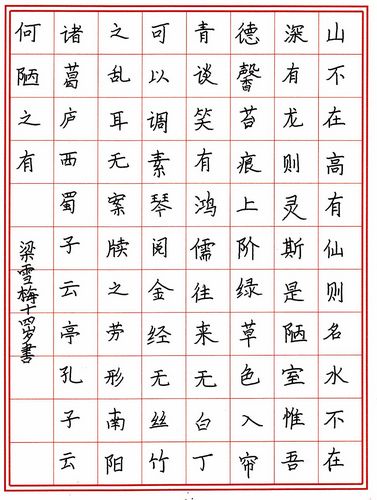 山不在高有仙则名水不在
深有龙则灵斯是陋室惟吾
德馨苔痕上阶绿草色入帘
青谈笑有鸿儒往来无白丁
可以调素琴阅金经无丝竹
之乱耳无案牍之劳形南阳
诸葛庐西蜀子云亭孔子云
何陋之有
梁雪梅十四岁書